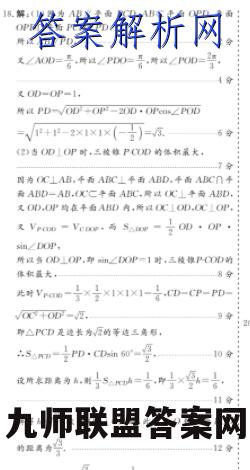 答案解析网
又∠AOD=π/6,所以∠PDO=π/6,所以∠POD=2π/3,
4分
又OD=OP=1,
所以PD=√(OD²+OP²-2OD·OPcos∠POD)
=√(1²+1²-2×1×1×(-1/2))=√3. 6分
(2)当OD⊥OP时,三棱锥P-COD的体积最大,
7分
因为OC⊥AB,平面ABC⊥平面ABD,平面ABC∩平
面ABD=AB,OC⊂平面ABC,所以OC⊥平面ABD,
又OD,OP均在平面ABD内,所以OC⊥OD,OC⊥OP,
又V_{P-COD}=V_{C-DOP},而S_{△DOP}=1/2 OD·OP·
sin∠DOP,
所以当OD⊥OP,即sin∠DOP=1时,三棱锥P-COD的
体积最大, 8分
此时V_{P-COD}=1/3×1/2×1×1×1=1/6,CD=CP=PD=
√(OC²+OD²)=√2, 9分
即△PCD是边长为√2的等边三角形,
∴S_{△PCD}=1/2 PD·CDsin 60°=√3/2, 10分
设所求距离为h,则1/3 S_{△PCD}h=1/6,即1/3×√3/2 h=1/6,
11分
九师联盟答案网
的距离为√3/3. 12分